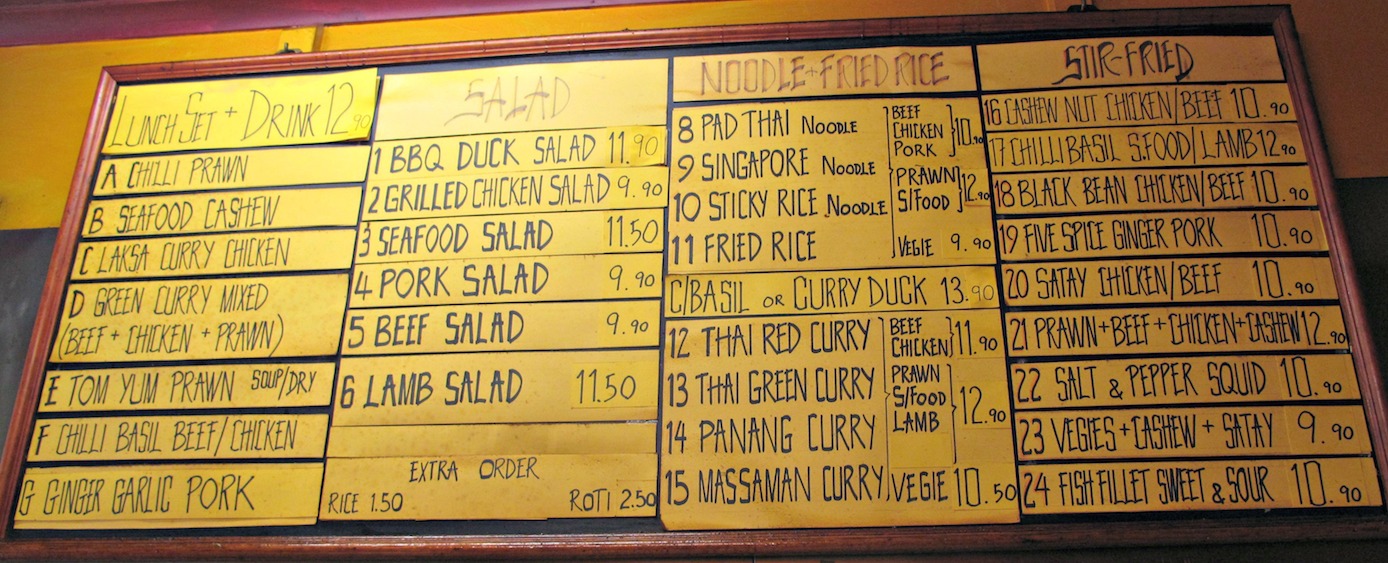 LUNCH SET + DRINK 12.90
A CHILLI PRAWN
B SEAFOOD CASHEW
C LAKSA CURRY CHICKEN
D GREEN CURRY MIXED
(BEEF + CHICKEN + PRAWN)
E TOM YUM PRAWN SOUP/DRY
F CHILLI BASIL BEEF/CHICKEN
G GINGER GARLIC PORK
SALAD
1 BBQ DUCK SALAD 11.90
2 GRILLED CHICKEN SALAD 9.90
3 SEAFOOD SALAD 11.50
4 PORK SALAD 9.90
5 BEEF SALAD 9.90
6 LAMB SALAD 11.50
EXTRA ORDER
RICE 1.50 ROTI 2.50
NOODLE + FRIED RICE
8 PAD THAI NOODLE
9 SINGAPORE NOODLE
10 STICKY RICE NOODLE
11 FRIED RICE
BEEF
CHICKEN
PORK
10.90
PRAWN
S/FOOD
12.90
VEGIE 9.90
C/BASIL OR CURRY DUCK 13.90
12 THAI RED CURRY
13 THAI GREEN CURRY
14 PANANG CURRY
15 MASSAMAN CURRY
BEEF
CHICKEN
11.90
PRAWN
S/FOOD
LAMB
12.90
VEGIE 10.50
STIR-FRIED
16 CASHEW NUT CHICKEN/BEEF 10.90
17 CHILLI BASIL S.FOOD/LAMB 12.90
18 BLACK BEAN CHICKEN/BEEF 10.90
19 FIVE SPICE GINGER PORK 10.90
20 SATAY CHICKEN/BEEF 10.90
21 PRAWN + BEEF + CHICKEN + CASHEW 12.90
22 SALT & PEPPER SQUID 10.90
23 VEGIES + CASHEW + SATAY 9.90
24 FISH FILLET SWEET & SOUR 10.90